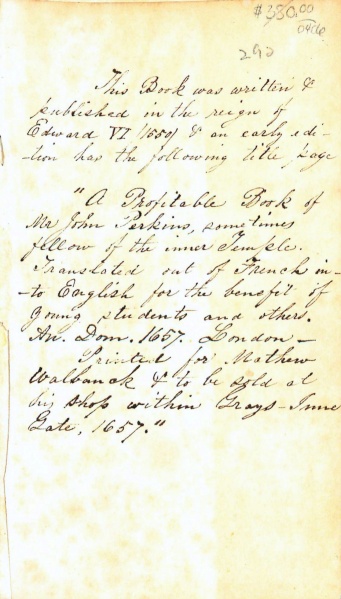 $380.00
290
This Book was written &
published in the reign of
Edward VI (1550) & an early edi-
tion has the following title page
"A Profitable Book of
Mr John Perkins, sometimes
fellow of the inner Temple.
Translated out of French in-
-to English for the benefit of
young students and others.
An. Dom. 1657. London -
Printed for Mathew
Walbanck & to be sold at
his shop within Grays-Inne
Gate, 1657."